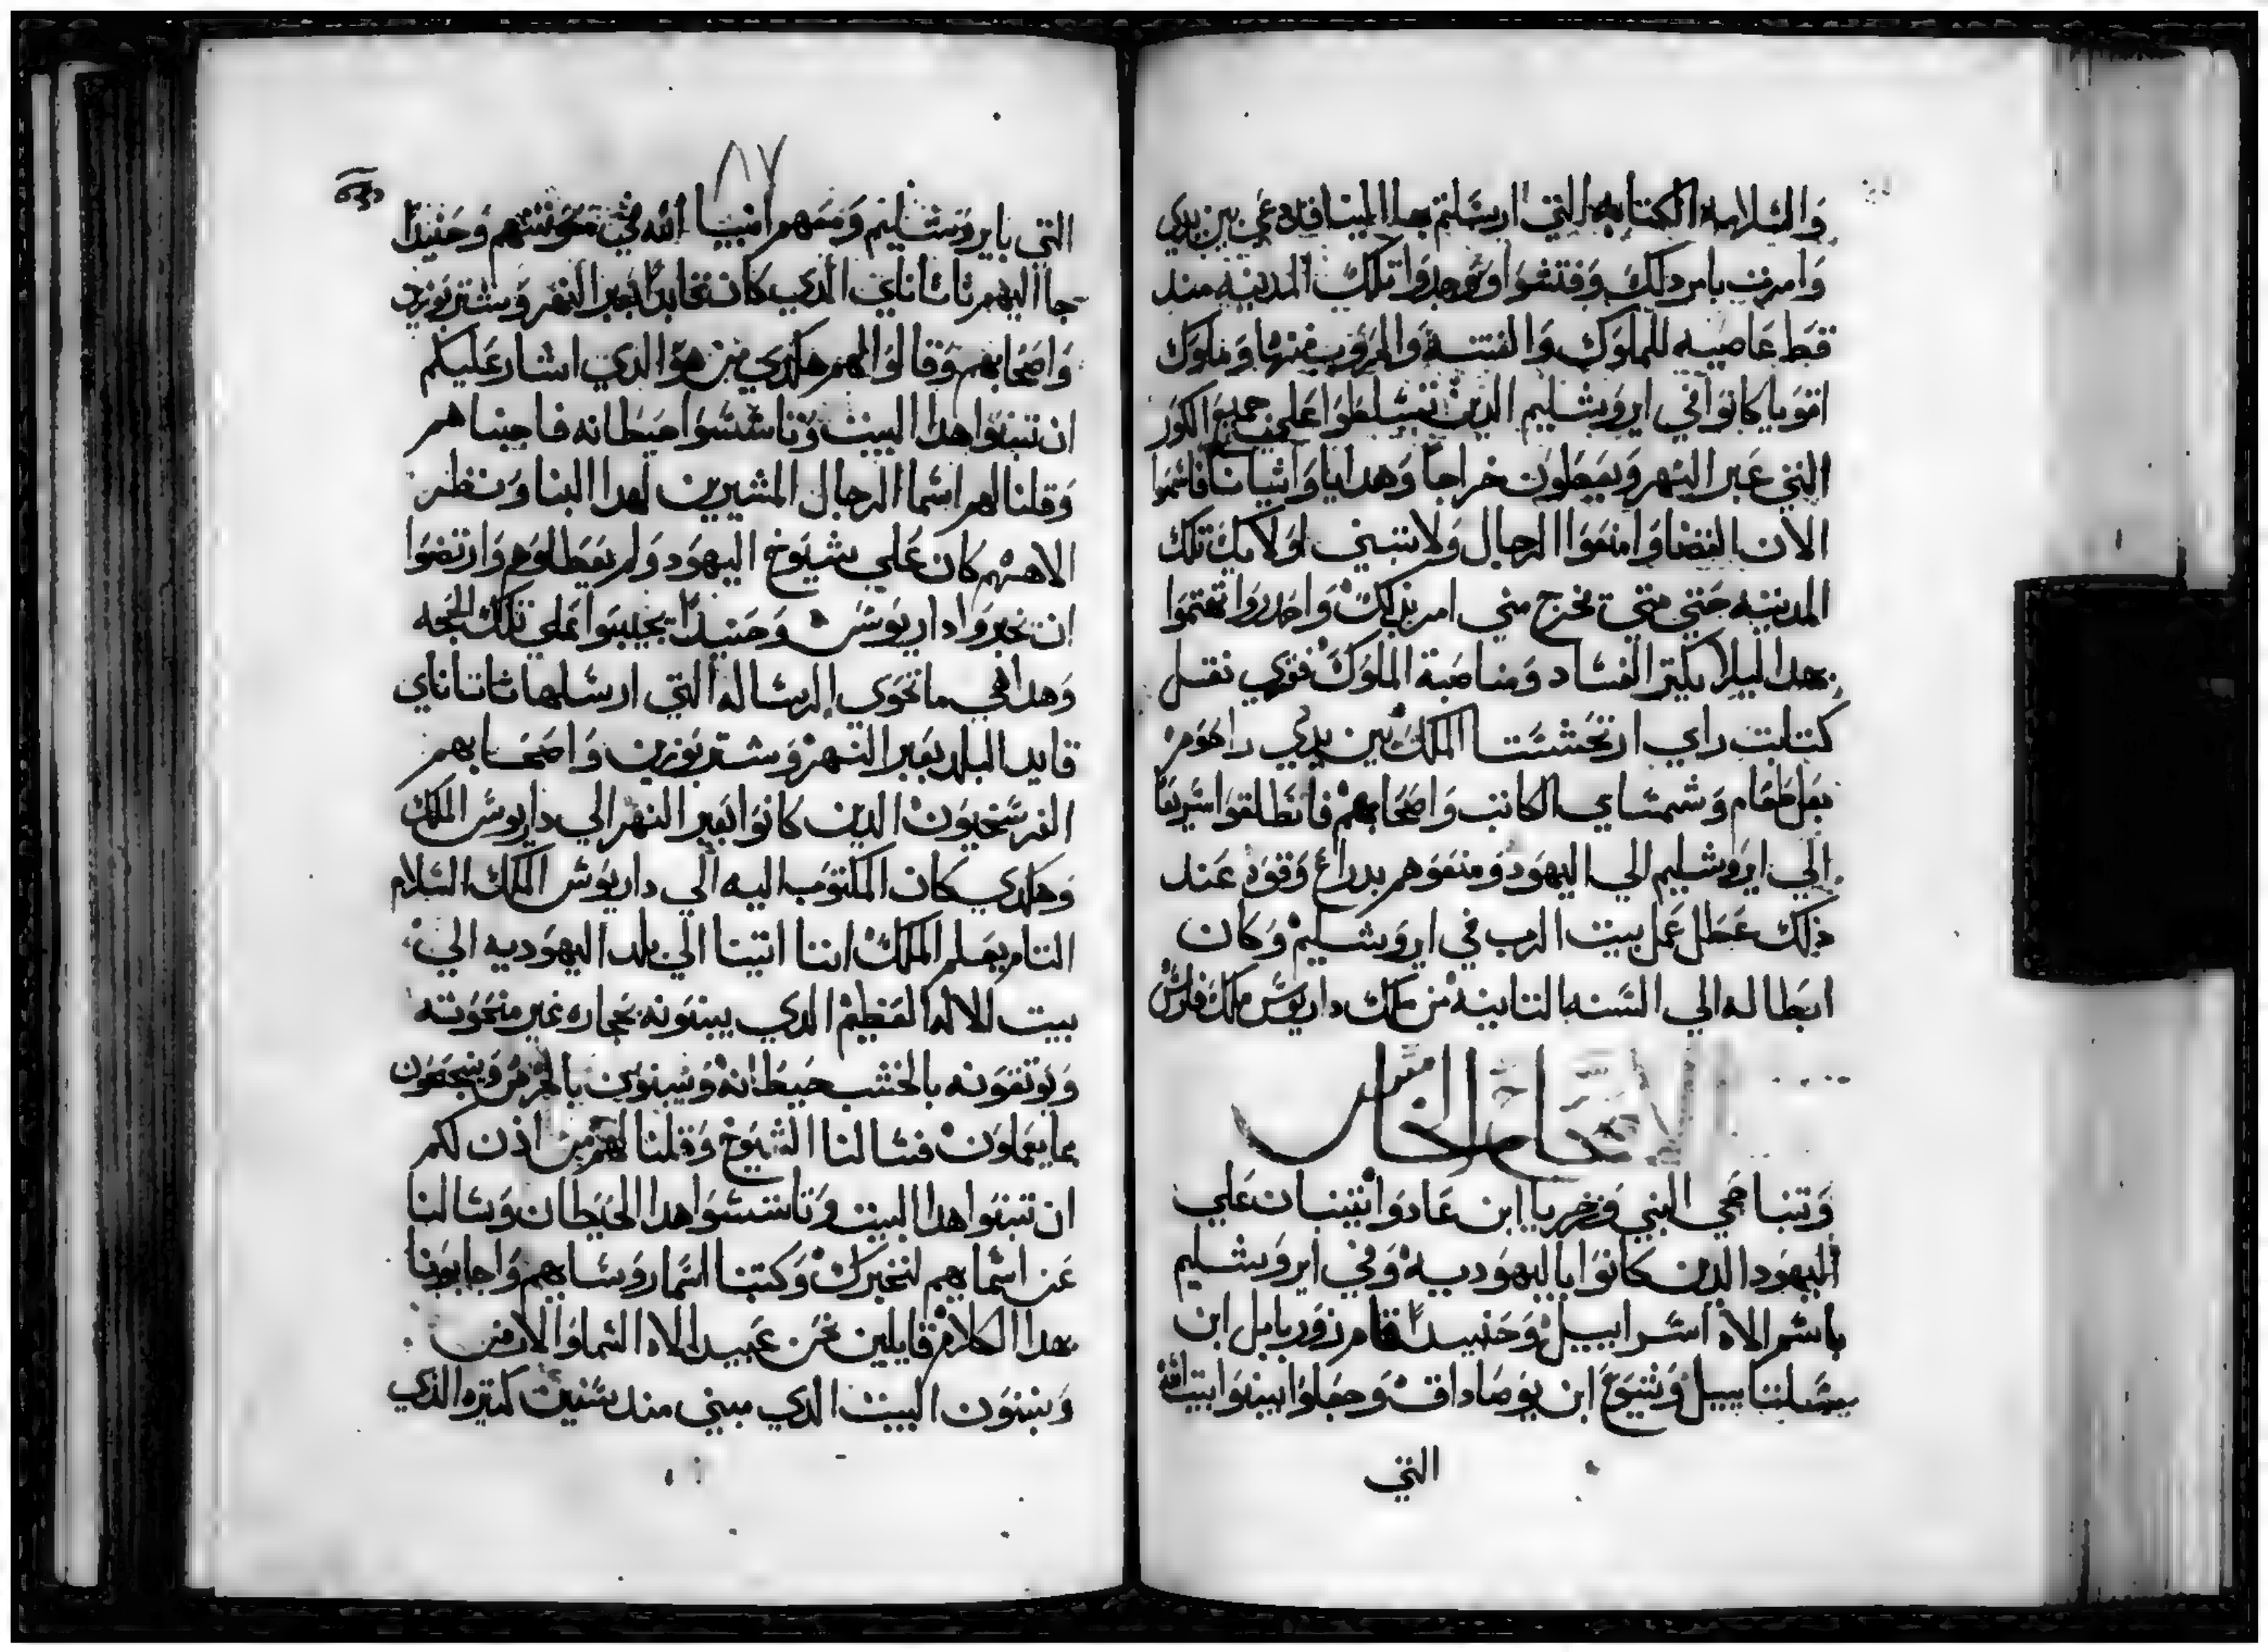 والسلامه الكتابه التي ارسلتم بها الينا قد دعي بين يدي
وامرت بامر دلك وفتشوا ووجدوا تلك المدينه مند
قط عاصيه للملوك والفتنه والحروب منها وملوك
اقويا كانوا في ايروشليم الدين تسلطوا علي جميع الكور
التي عبر النهر ويعطون خراجا وهدايا واتيانا فاسمعوا
الان القضا وامنعوا الرجال ولا تبني اولايك تلك
المدينه حتي متي تخرج مني امر بدلك واحدروا تهتموا
بهدا ليلا يكتر الفساد ومناصبة الملوك فقري نقل
كتابت راي ارتحششتا الملك بين يدي راحوم
بعل طعام وشمشاي الكاتب واصحابهم فانطلقوا سريعا
الي ايروشليم الي اليهود ومنعوهم بدراع وقوه عند
ذلك عطل عمل بيت الرب في ايروشليم وكان
ابطاله الي السنه التانيه من ملك داريوس ملك فارس
الاصحاح الخامس
وتنبا حجي النبي وزخريا ابن عادوا يتنبان علي
اليهود الدين كانوا باليهوديه وفي ايروشليم
باسم الاه اسراييل وحنيدا قام زوربابل ابن
شلتاييل ويشوع ابن يوصاداق وجعلوا يبنوا بيت الله
التي
٨٧
التي بايروشليم ومعهم انبيا الله في معونتهم وحنيدا
جا اليهم تاتاناي الدي كان قايدا بعبر النهر وشتربوزين
واصحابهم وقالوا لهم هكدي من هو الدي اشار عليكم
ان تبنوا هدا البيت وتاسسوا حيطانه فاجبناهم
وقلنا لهم اسما الرجال المشيرين لهدا البنا ونظر
الاههم كان علي شيوخ اليهود ولم يعطلوهم وارتضوا
ان تخبروا داريوس وحنيدا تجيبوا علي تلك الحجه
وهدا هي ما تحوي الرساله التي ارسلها تاتاناي
قايد البلد بعبر النهر وشتربوزين واصحابهم
الفرسخيون الدين كانوا بعبر النهر الي داريوس الملك
وهكدي كان المكتوب اليه الي داريوس الملك السلام
التام يعلم الملك اننا اتينا الي بلد اليهوديه الي
بيت الاله العظيم الدي يبنونه بحجاره غير منحوته
ويوتقونه بالخشب حيطانه ويبنون بالحرص وينجحون
بما يعملون فسالنا الشيوخ وقلنا لهم من اذن لكم
ان تبنوا هدا البيت وتاسسوا هدا الحيطان وسالنا
عن اسمايهم لنخبرك وكتبنا اسما روسايهم واجابونا
بهدا الكلام قايلين نحن عبيد الاه السما والارض
ونبنون البيت الدي مبني مند سنين كتيره الذي